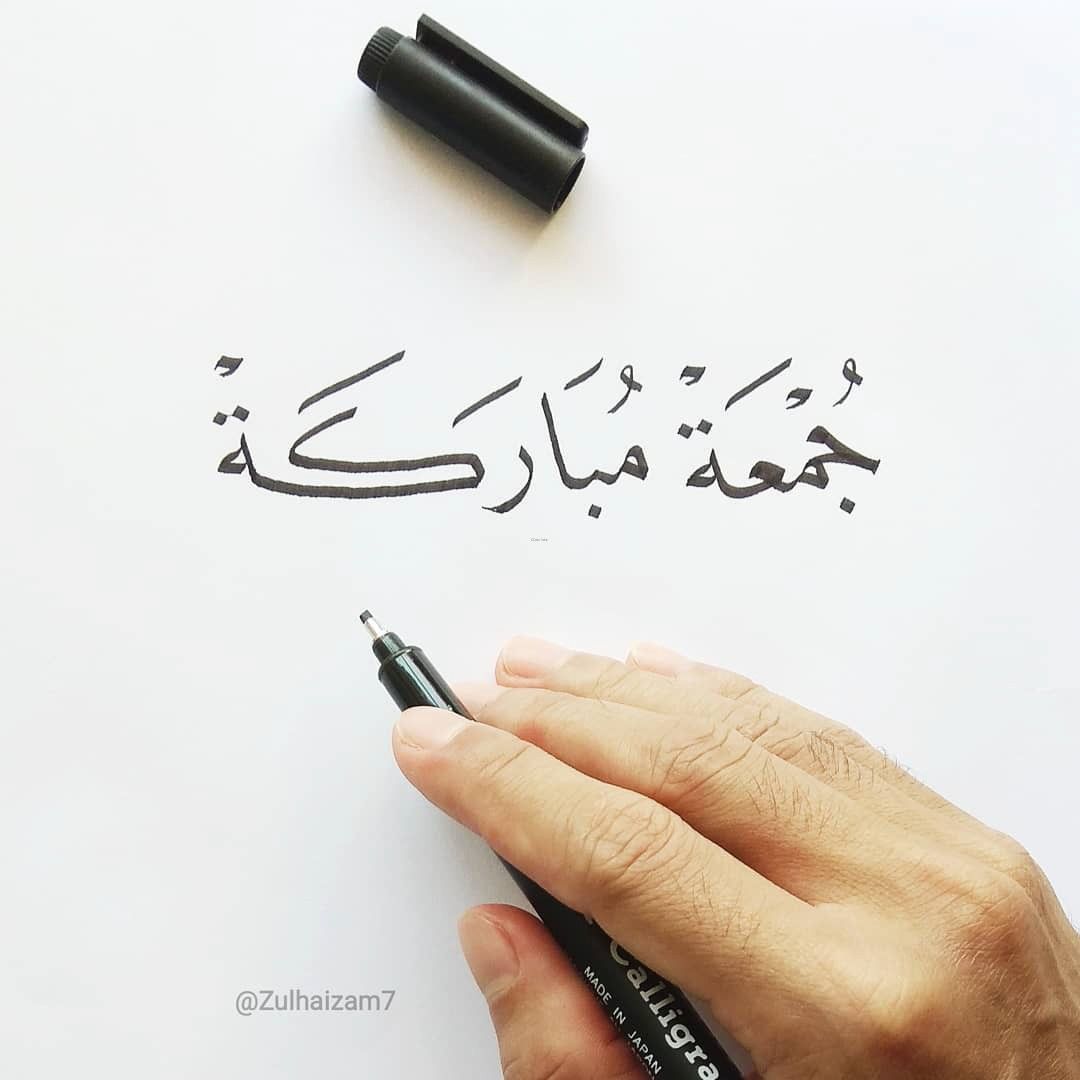 جُمْعَةْ مُبَارَكَةْ
Calligra
MADE IN JAPAN
@Zulhaizam7